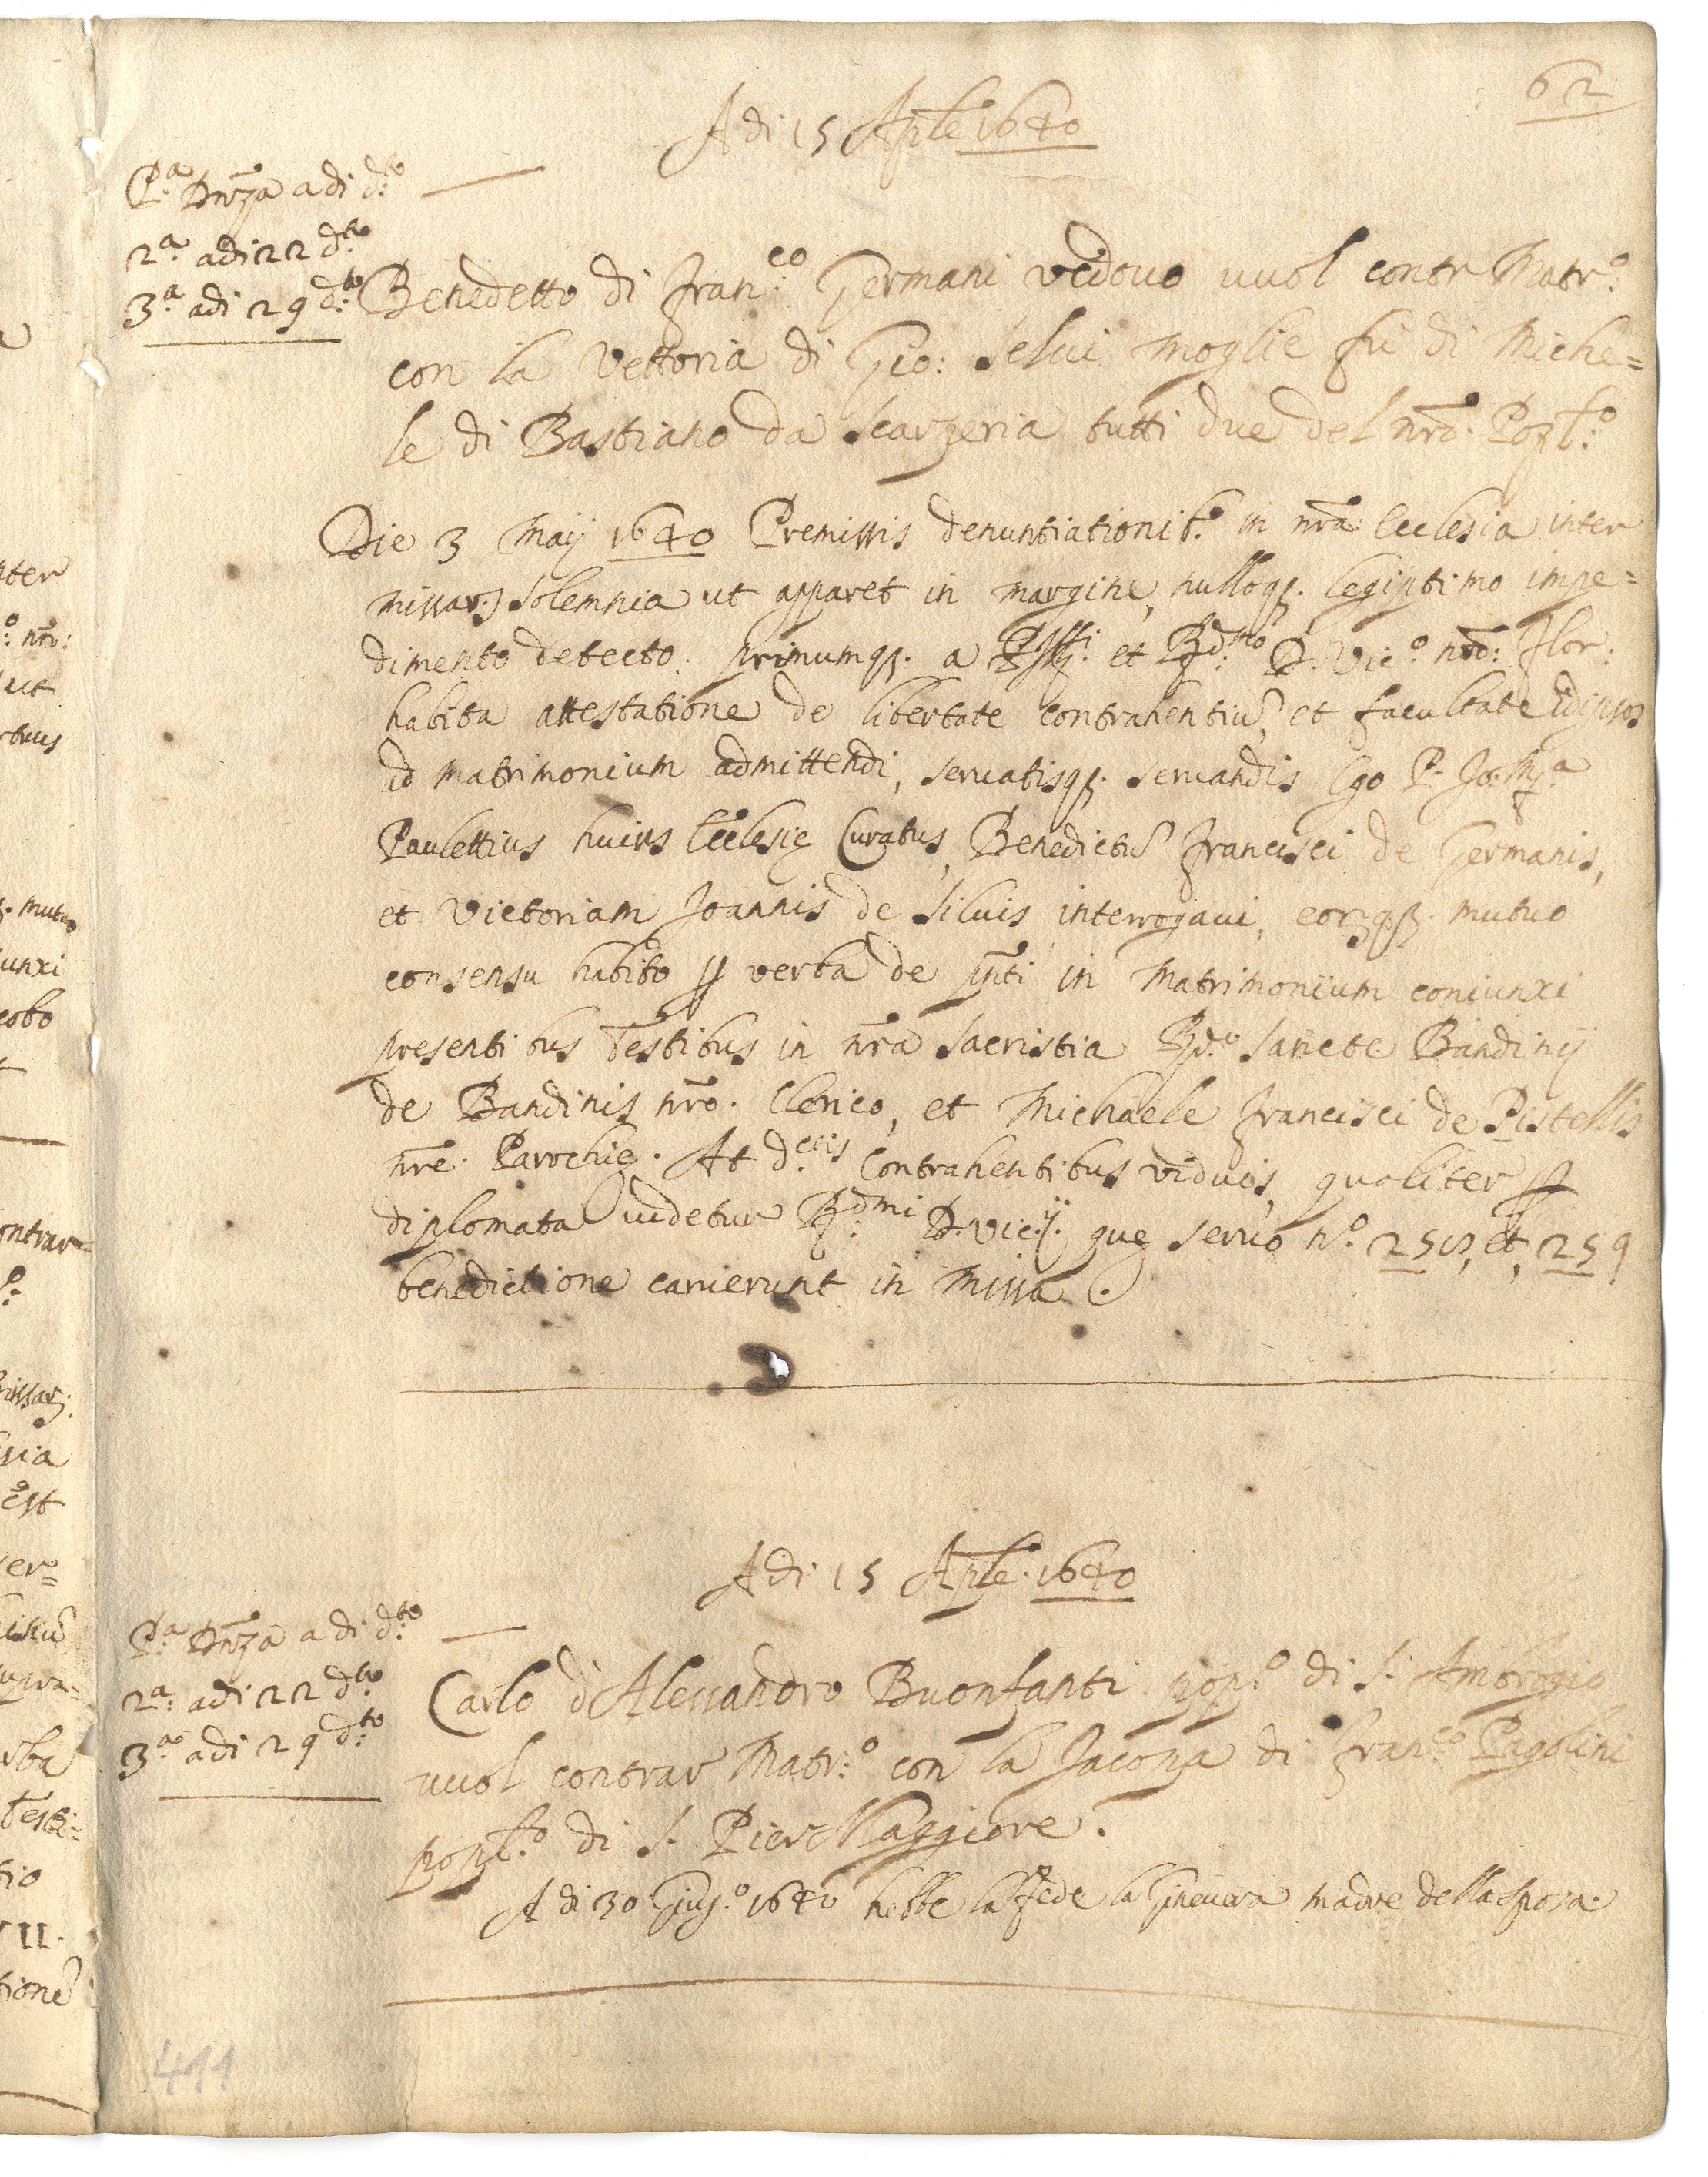 62
Adi 15 Aple 1640
P.a Dnza adi d.to
2.a adi 22 d.to
3.a adi 29 d.to
Benedetto di Fran.co Germani vedovo vuol contr Matr.o
con la Vettoria di Gio: Selvi moglie fù di Miche=
le di Bastiano da Scarperia tutti due del nro: Popl.o
Die 3 Maij 1640 Premissis denuntiationib.s in nra: Ecclesia inter
missar. solemnia ut apparet in margine, nulloq. legiptimo impe=
dimento detecto. primumq. a et D. Vic.o nro: Flor:
habita attestatione de libertate contrahentiu, et facultate
ad matrimonium admittendi, servatisq. servandis Ego P. Jo:
Paulettius huius Ecclesie Curatus, Benedictu Francisci de Germanis,
et Victoriam Joannis de Silvis interrogavi, eorq. mutuo
consensu habito p verba de pnti in Matrimonium coniunxi
presentibus Testibus in nra Sacristia R.do Sancte Bandinij
de Bandinis nro. Clerico, et Michaele Francisci de Pistellis
nre. Parochie. At d.ctis Contrahentibus viduis, qualiter p
diplomata videtur R.dmi D. Vic.ij. que servo n.o et, 259
benedictione caruerunt in Missa.
Adi 15 Aple. 1640
P.a Dnza adi d.to
2.a adi 22 d.to
3.a adi 29 d.to
Carlo d'Alessandro Buonfanti pop.o di S. Ambrogio
vuol contrar Matr.o con la Jacopa di Fran.co Pagolini
popl.o di S. Pier Maggiore.
A di 30 Giug.o 1640 hebbe la fede la Ginevera madre della sposa.
411